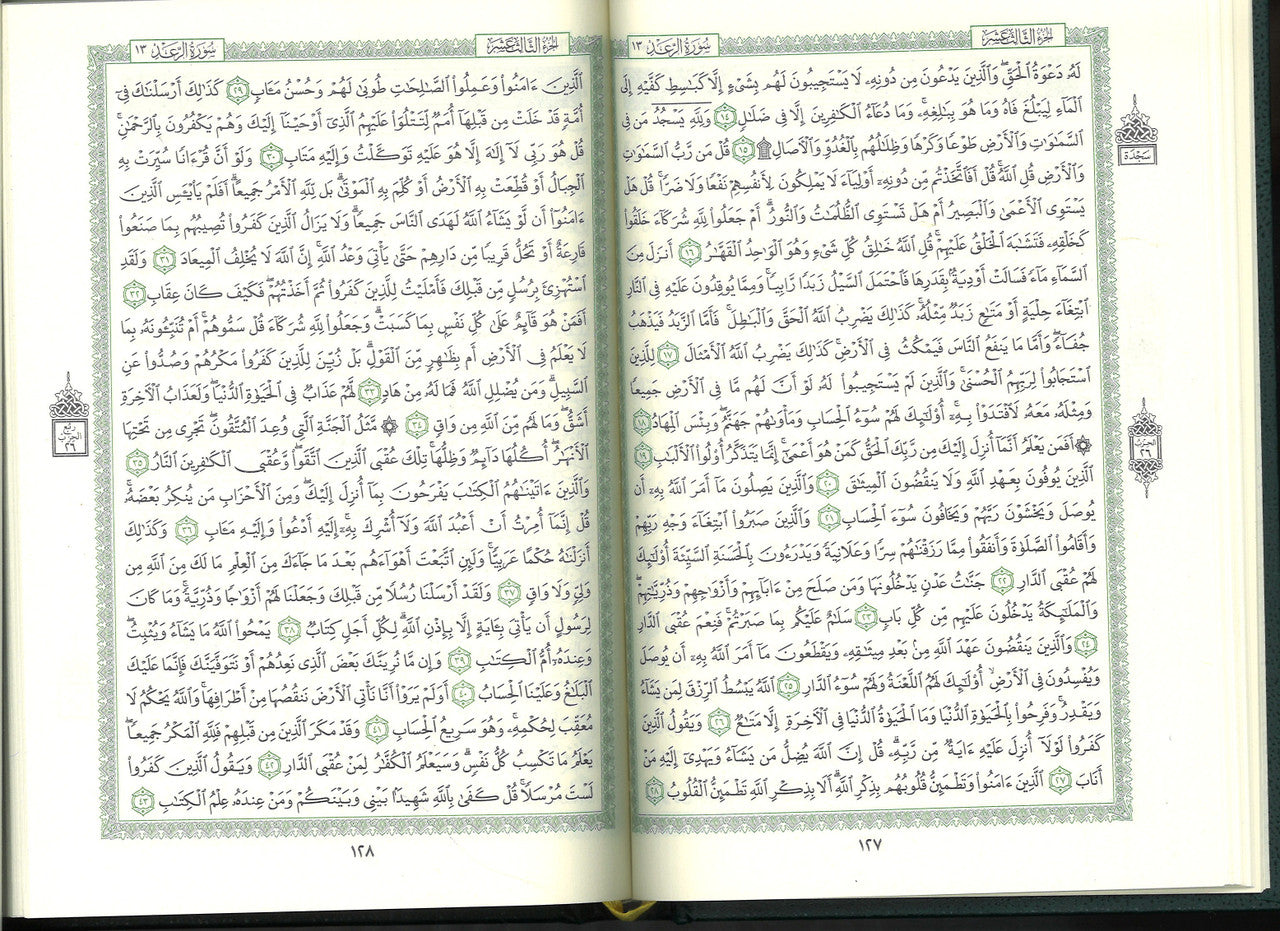 الجزء الثالث عشر
سورة الرعد ١٣
لَهُۥ دَعْوَةُ ٱلْحَقِّ ۖ وَٱلَّذِينَ يَدْعُونَ مِن دُونِهِۦ لَا يَسْتَجِيبُونَ لَهُم بِشَىْءٍ إِلَّا كَبَٰسِطِ كَفَّيْهِ إِلَى
ٱلْمَآءِ لِيَبْلُغَ فَاهُ وَمَا هُوَ بِبَٰلِغِهِۦ ۚ وَمَا دُعَآءُ ٱلْكَٰفِرِينَ إِلَّا فِى ضَلَٰلٍ ١٤ وَلِلَّهِ يَسْجُدُ مَن فِى
ٱلسَّمَٰوَٰتِ وَٱلْأَرْضِ طَوْعًا وَكَرْهًا وَظِلَٰلُهُم بِٱلْغُدُوِّ وَٱلْءَاصَالِ ۩ ١٥ قُلْ مَن رَّبُّ ٱلسَّمَٰوَٰتِ
وَٱلْأَرْضِ قُلِ ٱللَّهُ ۚ قُلْ أَفَٱتَّخَذْتُم مِّن دُونِهِۦٓ أَوْلِيَآءَ لَا يَمْلِكُونَ لِأَنفُسِهِمْ نَفْعًا وَلَا ضَرًّا ۚ قُلْ هَلْ
يَسْتَوِى ٱلْأَعْمَىٰ وَٱلْبَصِيرُ أَمْ هَلْ تَسْتَوِى ٱلظُّلُمَٰتُ وَٱلنُّورُ ۗ أَمْ جَعَلُوا۟ لِلَّهِ شُرَكَآءَ خَلَقُوا۟
كَخَلْقِهِۦ فَتَشَٰبَهَ ٱلْخَلْقُ عَلَيْهِمْ ۚ قُلِ ٱللَّهُ خَٰلِقُ كُلِّ شَىْءٍ وَهُوَ ٱلْوَٰحِدُ ٱلْقَهَّٰرُ ١٦ أَنزَلَ مِنَ
ٱلسَّمَآءِ مَآءً فَسَالَتْ أَوْدِيَةٌۢ بِقَدَرِهَا فَٱحْتَمَلَ ٱلسَّيْلُ زَبَدًا رَّابِيًا ۚ وَمِمَّا يُوقِدُونَ عَلَيْهِ فِى ٱلنَّارِ
ٱبْتِغَآءَ حِلْيَةٍ أَوْ مَتَٰعٍ زَبَدٌ مِّثْلُهُۥ ۚ كَذَٰلِكَ يَضْرِبُ ٱللَّهُ ٱلْحَقَّ وَٱلْبَٰطِلَ ۚ فَأَمَّا ٱلزَّبَدُ فَيَذْهَبُ
جُفَآءً ۖ وَأَمَّا مَا يَنفَعُ ٱلنَّاسَ فَيَمْكُثُ فِى ٱلْأَرْضِ ۚ كَذَٰلِكَ يَضْرِبُ ٱللَّهُ ٱلْأَمْثَالَ ١٧ لِلَّذِينَ
ٱسْتَجَابُوا۟ لِرَبِّهِمُ ٱلْحُسْنَىٰ ۚ وَٱلَّذِينَ لَمْ يَسْتَجِيبُوا۟ لَهُۥ لَوْ أَنَّ لَهُم مَّا فِى ٱلْأَرْضِ جَمِيعًا
وَمِثْلَهُۥ مَعَهُۥ لَٱفْتَدَوْا۟ بِهِۦٓ ۚ أُو۟لَٰٓئِكَ لَهُمْ سُوٓءُ ٱلْحِسَابِ وَمَأْوَىٰهُمْ جَهَنَّمُ ۖ وَبِئْسَ ٱلْمِهَادُ ١٨
۞ أَفَمَن يَعْلَمُ أَنَّمَآ أُنزِلَ إِلَيْكَ مِن رَّبِّكَ ٱلْحَقُّ كَمَنْ هُوَ أَعْمَىٰٓ ۚ إِنَّمَا يَتَذَكَّرُ أُو۟لُوا۟ ٱلْأَلْبَٰبِ ١٩
ٱلَّذِينَ يُوفُونَ بِعَهْدِ ٱللَّهِ وَلَا يَنقُضُونَ ٱلْمِيثَٰقَ ٢٠ وَٱلَّذِينَ يَصِلُونَ مَآ أَمَرَ ٱللَّهُ بِهِۦٓ أَن
يُوصَلَ وَيَخْشَوْنَ رَبَّهُمْ وَيَخَافُونَ سُوٓءَ ٱلْحِسَابِ ٢١ وَٱلَّذِينَ صَبَرُوا۟ ٱبْتِغَآءَ وَجْهِ رَبِّهِمْ
وَأَقَامُوا۟ ٱلصَّلَوٰةَ وَأَنفَقُوا۟ مِمَّا رَزَقْنَٰهُمْ سِرًّا وَعَلَانِيَةً وَيَدْرَءُونَ بِٱلْحَسَنَةِ ٱلسَّيِّئَةَ أُو۟لَٰٓئِكَ
لَهُمْ عُقْبَى ٱلدَّارِ ٢٢ جَنَّٰتُ عَدْنٍ يَدْخُلُونَهَا وَمَن صَلَحَ مِنْ ءَابَآئِهِمْ وَأَزْوَٰجِهِمْ وَذُرِّيَّٰتِهِمْ ۖ
وَٱلْمَلَٰٓئِكَةُ يَدْخُلُونَ عَلَيْهِم مِّن كُلِّ بَابٍ ٢٣ سَلَٰمٌ عَلَيْكُم بِمَا صَبَرْتُمْ ۚ فَنِعْمَ عُقْبَى ٱلدَّارِ
٢٤ وَٱلَّذِينَ يَنقُضُونَ عَهْدَ ٱللَّهِ مِنۢ بَعْدِ مِيثَٰقِهِۦ وَيَقْطَعُونَ مَآ أَمَرَ ٱللَّهُ بِهِۦٓ أَن يُوصَلَ
وَيُفْسِدُونَ فِى ٱلْأَرْضِ ۙ أُو۟لَٰٓئِكَ لَهُمُ ٱللَّعْنَةُ وَلَهُمْ سُوٓءُ ٱلدَّارِ ٢٥ ٱللَّهُ يَبْسُطُ ٱلرِّزْقَ لِمَن يَشَآءُ
وَيَقْدِرُ ۚ وَفَرِحُوا۟ بِٱلْحَيَوٰةِ ٱلدُّنْيَا وَمَا ٱلْحَيَوٰةُ ٱلدُّنْيَا فِى ٱلْءَاخِرَةِ إِلَّا مَتَٰعٌ ٢٦ وَيَقُولُ ٱلَّذِينَ
كَفَرُوا۟ لَوْلَآ أُنزِلَ عَلَيْهِ ءَايَةٌ مِّن رَّبِّهِۦ ۗ قُلْ إِنَّ ٱللَّهَ يُضِلُّ مَن يَشَآءُ وَيَهْدِىٓ إِلَيْهِ مَنْ
أَنَابَ ٢٧ ٱلَّذِينَ ءَامَنُوا۟ وَتَطْمَئِنُّ قُلُوبُهُم بِذِكْرِ ٱللَّهِ ۗ أَلَا بِذِكْرِ ٱللَّهِ تَطْمَئِنُّ ٱلْقُلُوبُ ٢٨
سجدة
الحزب
٢٦
١٢٧
الجزء الثالث عشر
سورة الرعد ١٣
ٱلَّذِينَ ءَامَنُوا۟ وَعَمِلُوا۟ ٱلصَّٰلِحَٰتِ طُوبَىٰ لَهُمْ وَحُسْنُ مَـَٔابٍ ٢٩ كَذَٰلِكَ أَرْسَلْنَٰكَ فِىٓ
أُمَّةٍ قَدْ خَلَتْ مِن قَبْلِهَآ أُمَمٌ لِّتَتْلُوَا۟ عَلَيْهِمُ ٱلَّذِىٓ أَوْحَيْنَآ إِلَيْكَ وَهُمْ يَكْفُرُونَ بِٱلرَّحْمَٰنِ ۚ
قُلْ هُوَ رَبِّى لَآ إِلَٰهَ إِلَّا هُوَ عَلَيْهِ تَوَكَّلْتُ وَإِلَيْهِ مَتَابِ ٣٠ وَلَوْ أَنَّ قُرْءَانًا سُيِّرَتْ بِهِ
ٱلْجِبَالُ أَوْ قُطِّعَتْ بِهِ ٱلْأَرْضُ أَوْ كُلِّمَ بِهِ ٱلْمَوْتَىٰ ۗ بَل لِّلَّهِ ٱلْأَمْرُ جَمِيعًا ۗ أَفَلَمْ يَا۟يْـَٔسِ ٱلَّذِينَ
ءَامَنُوٓا۟ أَن لَّوْ يَشَآءُ ٱللَّهُ لَهَدَى ٱلنَّاسَ جَمِيعًا ۗ وَلَا يَزَالُ ٱلَّذِينَ كَفَرُوا۟ تُصِيبُهُم بِمَا صَنَعُوا۟
قَارِعَةٌ أَوْ تَحُلُّ قَرِيبًا مِّن دَارِهِمْ حَتَّىٰ يَأْتِىَ وَعْدُ ٱللَّهِ ۚ إِنَّ ٱللَّهَ لَا يُخْلِفُ ٱلْمِيعَادَ ٣١ وَلَقَدِ
ٱسْتُهْزِئَ بِرُسُلٍ مِّن قَبْلِكَ فَأَمْلَيْتُ لِلَّذِينَ كَفَرُوا۟ ثُمَّ أَخَذْتُهُمْ ۖ فَكَيْفَ كَانَ عِقَابِ ٣٢
أَفَمَنْ هُوَ قَآئِمٌ عَلَىٰ كُلِّ نَفْسٍۭ بِمَا كَسَبَتْ ۗ وَجَعَلُوا۟ لِلَّهِ شُرَكَآءَ قُلْ سَمُّوهُمْ ۚ أَمْ تُنَبِّـُٔونَهُۥ بِمَا
لَا يَعْلَمُ فِى ٱلْأَرْضِ أَم بِظَٰهِرٍ مِّنَ ٱلْقَوْلِ ۗ بَلْ زُيِّنَ لِلَّذِينَ كَفَرُوا۟ مَكْرُهُمْ وَصُدُّوا۟ عَنِ
ٱلسَّبِيلِ ۗ وَمَن يُضْلِلِ ٱللَّهُ فَمَا لَهُۥ مِنْ هَادٍ ٣٣ لَّهُمْ عَذَابٌ فِى ٱلْحَيَوٰةِ ٱلدُّنْيَا ۖ وَلَعَذَابُ ٱلْءَاخِرَةِ
أَشَقُّ ۖ وَمَا لَهُم مِّنَ ٱللَّهِ مِن وَاقٍ ٣٤ ۞ مَّثَلُ ٱلْجَنَّةِ ٱلَّتِى وُعِدَ ٱلْمُتَّقُونَ ۖ تَجْرِى مِن تَحْتِهَا
ٱلْأَنْهَٰرُ ۖ أُكُلُهَا دَآئِمٌ وَظِلُّهَا ۚ تِلْكَ عُقْبَى ٱلَّذِينَ ٱتَّقَوا۟ ۖ وَّعُقْبَى ٱلْكَٰفِرِينَ ٱلنَّارُ ٣٥
وَٱلَّذِينَ ءَاتَيْنَٰهُمُ ٱلْكِتَٰبَ يَفْرَحُونَ بِمَآ أُنزِلَ إِلَيْكَ ۖ وَمِنَ ٱلْأَحْزَابِ مَن يُنكِرُ بَعْضَهُۥ ۚ
قُلْ إِنَّمَآ أُمِرْتُ أَنْ أَعْبُدَ ٱللَّهَ وَلَآ أُشْرِكَ بِهِۦٓ ۚ إِلَيْهِ أَدْعُوا۟ وَإِلَيْهِ مَـَٔابِ ٣٦ وَكَذَٰلِكَ
أَنزَلْنَٰهُ حُكْمًا عَرَبِيًّا ۚ وَلَئِنِ ٱتَّبَعْتَ أَهْوَآءَهُم بَعْدَ مَا جَآءَكَ مِنَ ٱلْعِلْمِ مَا لَكَ مِنَ ٱللَّهِ مِن
وَلِىٍّ وَلَا وَاقٍ ٣٧ وَلَقَدْ أَرْسَلْنَا رُسُلًا مِّن قَبْلِكَ وَجَعَلْنَا لَهُمْ أَزْوَٰجًا وَذُرِّيَّةً ۚ وَمَا كَانَ
لِرَسُولٍ أَن يَأْتِىَ بِـَٔايَةٍ إِلَّا بِإِذْنِ ٱللَّهِ ۗ لِكُلِّ أَجَلٍ كِتَابٌ ٣٨ يَمْحُوا۟ ٱللَّهُ مَا يَشَآءُ وَيُثْبِتُ ۖ
وَعِندَهُۥٓ أُمُّ ٱلْكِتَٰبِ ٣٩ وَإِن مَّا نُرِيَنَّكَ بَعْضَ ٱلَّذِى نَعِدُهُمْ أَوْ نَتَوَفَّيَنَّكَ فَإِنَّمَا عَلَيْكَ
ٱلْبَلَٰغُ وَعَلَيْنَا ٱلْحِسَابُ ٤٠ أَوَلَمْ يَرَوْا۟ أَنَّا نَأْتِى ٱلْأَرْضَ نَنقُصُهَا مِنْ أَطْرَافِهَا ۚ وَٱللَّهُ يَحْكُمُ لَا
مُعَقِّبَ لِحُكْمِهِۦ ۚ وَهُوَ سَرِيعُ ٱلْحِسَابِ ٤١ وَقَدْ مَكَرَ ٱلَّذِينَ مِن قَبْلِهِمْ فَلِلَّهِ ٱلْمَكْرُ جَمِيعًا ۖ
يَعْلَمُ مَا تَكْسِبُ كُلُّ نَفْسٍ ۗ وَسَيَعْلَمُ ٱلْكُفَّٰرُ لِمَنْ عُقْبَى ٱلدَّارِ ٤٢ وَيَقُولُ ٱلَّذِينَ كَفَرُوا۟
لَسْتَ مُرْسَلًا ۚ قُلْ كَفَىٰ بِٱللَّهِ شَهِيدًۢا بَيْنِى وَبَيْنَكُمْ وَمَنْ عِندَهُۥ عِلْمُ ٱلْكِتَٰبِ ٤٣
ربع
الحزب
٢٦
١٢٨